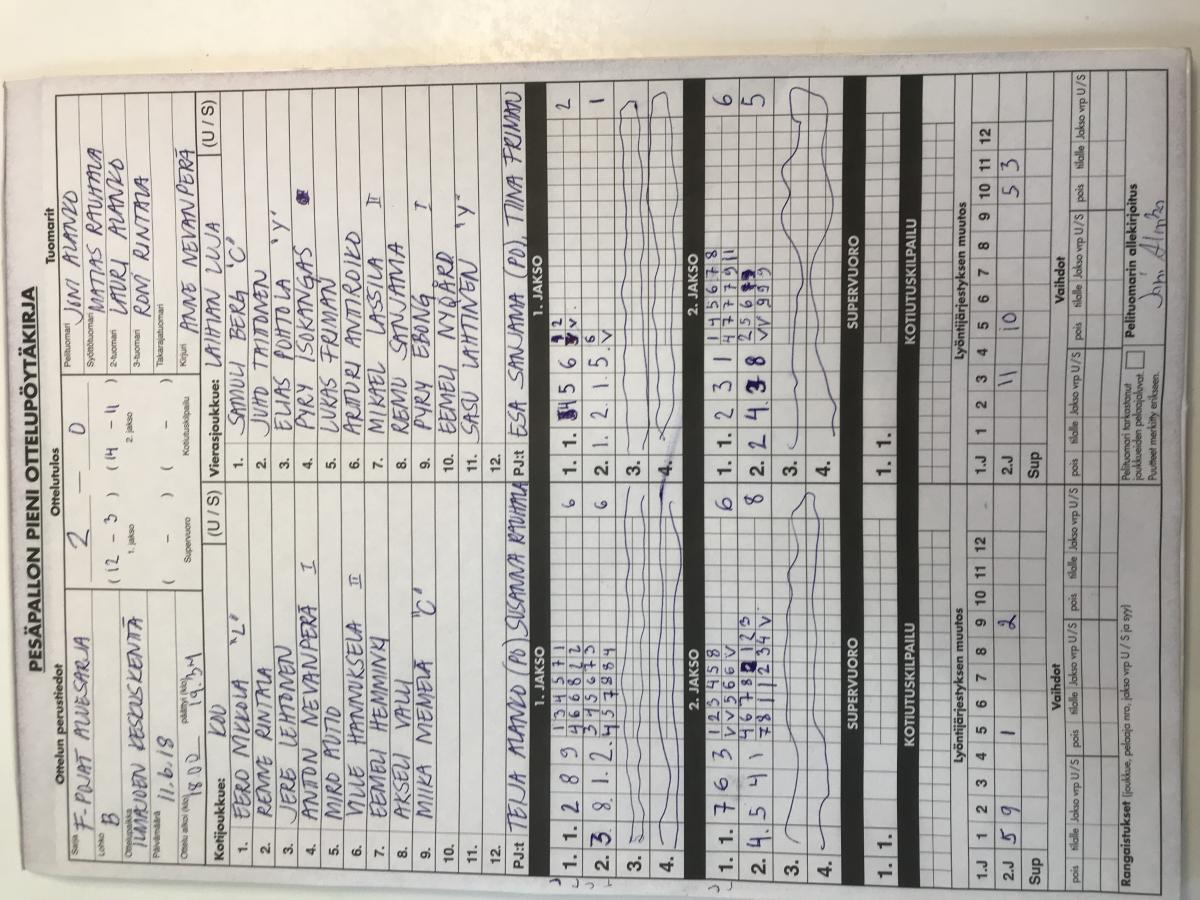 PESÄPALLON PIENI OTTELUPÖYTÄKIRJA
Ottelun perustiedot
Ottelutulos
Tuomarit
Sarja F-POJAT ALUESARJA
Lohko B
Ottelupaikka ILMAJOEN KESKUSKENTTÄ
Päivämäärä 11.6.18
Ottelu alkoi (klo) 18.00 päättyi (klo) 19.34
2 – 0
( 12 – 3 ) ( 14 – 11 )
1. jakso 2. jakso
( – ) ( – )
Supervuoro Kotiutuskilpailu
Pelituomari JINI ALANKO
Syöttötuomari MATIAS RAUHALA
2-tuomari LAURI ALANKO
3-tuomari RONI RINTALA
Takarajatuomari
Kirjuri ANNE NEVANPERÄ
Kotijoukkue: (U / S)
1. EERO MIKKOLA "L"
2. RENNE RINTALA
3. JERE LEHTONEN
4. ANTTON NEVANPERÄ I
5. MIRO AUTIO
6. VILLE HANNUKSELA II
7. EEMELI HEMMINKI
8. AKSELI VALLI
9. MIIKA MENNELÄ "C"
10.
11.
12.
PJ:t TEIJA ALANKO (PJ) SUSANNA RAUHALA
Vierasjoukkue: LAIHIAN LUJA (U / S)
1. SAMULI BERG "C"
2. JUHO TAITONEN
3. ELIAS POHTOLA "Y"
4. PYRY ISOKANGAS
5. LUKAS FRIMAN
6. ARTTURI ANTTIROIKO
7. MIKAEL LASSILA II
8. REMU SANJAMA
9. PYRY EBONG I
10. EEMELI NYGÅRD
11. SASU LAHTINEN "Y"
12.
PJ:t ESA SANJAMA (PJ), TIINA FRIMAN
1. JAKSO
1. 1. 2 8 9 1 3 4 5 7 1 6
4 6 6 8 2 2
2. 3. 8. 1. 2. 3 4 5 6 7 3 6
4 5 7 8 8 4
3.
4.
1. JAKSO
1. 1. 5 6 2
2. 1. 2. 1. 5. 6 1
v.
3.
4.
2. JAKSO
1. 1. 7 6 3 1 2 3 4 5 8 6
v v 5 6 6 v
2. 4. 5 4 1 4 6 7 8 1 2 3 8
7 8 1 1 2 3 4 v
3.
4.
2. JAKSO
1. 1. 2 3 1 1 4 5 6 7 8 6
4 7 7 7 9 11
2. 2 4. 8 2 5 6 5
v v 9 9 9
3.
4.
SUPERVUORO
1. 1.
SUPERVUORO
1. 1.
KOTIUTUSKILPAILU
KOTIUTUSKILPAILU
Lyöntijärjestyksen muutos
1.J 1 2 3 4 5 6 7 8 9 10 11 12
2.J 5 9 1 2
Sup
Lyöntijärjestyksen muutos
1.J 1 2 3 4 5 6 7 8 9 10 11 12
2.J 11 10 5 3
Sup
Vaihdot
pois tilalle Jakso vrp U/S pois tilalle Jakso vrp U/S pois tilalle Jakso vrp U/S
Vaihdot
pois tilalle Jakso vrp U/S pois tilalle Jakso vrp U/S pois tilalle Jakso vrp U/S
Rangaistukset (joukkue, pelaaja nro, jakso vrp U / S ja syy)
Pelituomari tarkastanut
joukkueiden pelaajaluvat.
Puutteet merkitty erikseen.
Pelituomarin allekirjoitus